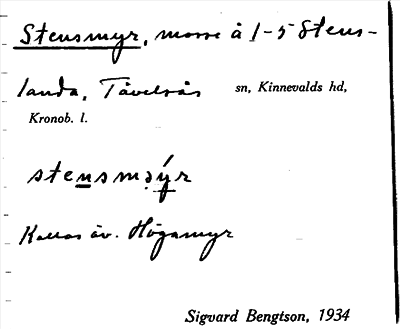 Stensmyr, mosse å 1-5 Stens-
landa, Tävelsås sn, Kinnevalds hd,
Kronob. l.
stensməýr
Kallas äv. Högamyr
Sigvard Bengtson, 1934